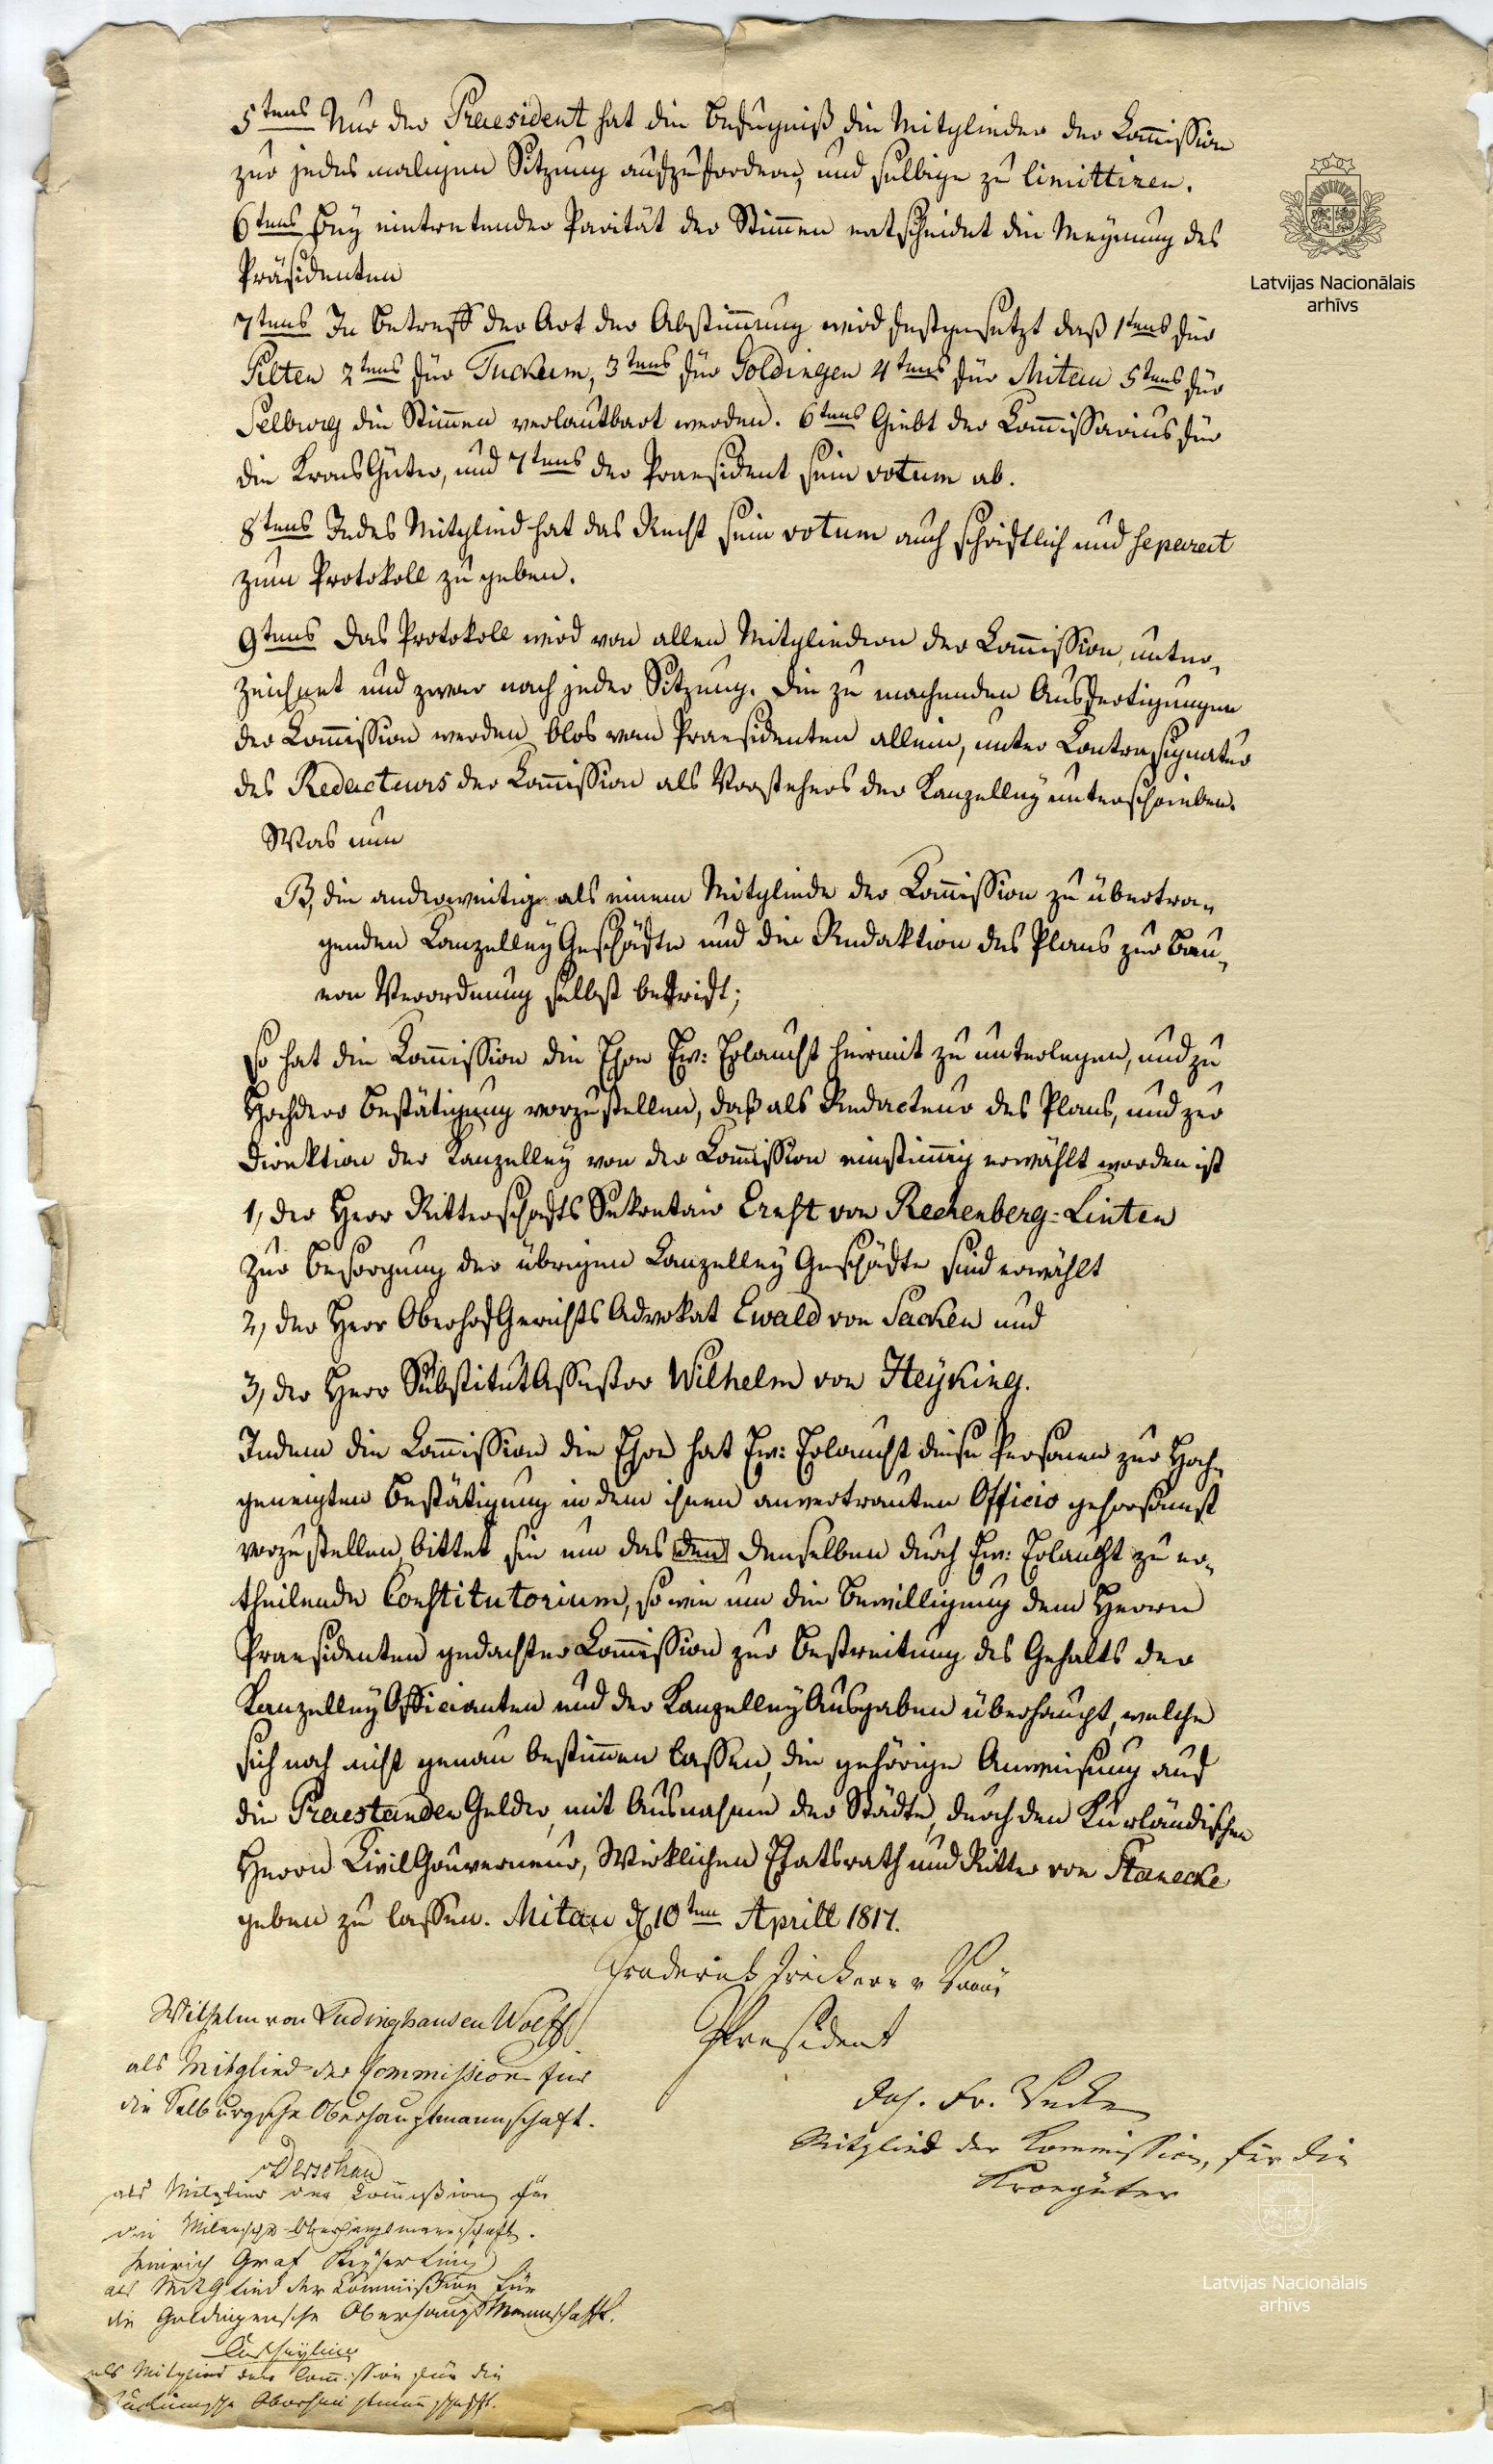 5tens Nur der Praesident hat die Befugniß die Mitglieder der Com̄ission
zur jedesmaligen Sitzung aufzufordern, und selbige zu limittiren.
6tens Bey eintretender Parität der Stim̄en entscheidet die Meynung des
Präsidenten
7tens In Betreff der Art der Abstim̄ung wird festgesetzt daß 1tens für
Pilten 2tens für Tuckum, 3tens für Goldingen 4tens für Mitau 5tens für
Selburg die Stim̄en verlautbart werden. 6tens Giebt der Com̄issarius für
die KronsGüter, und 7tens der Praesident sein votum ab.
8tens Jedes Mitglied hat das Recht sein votum auch schriftlich und separat
zum Protokoll zu geben.
9tens Das Protokoll wird von allen Mitgliedern der Com̄ission, unter„
zeichnet und zwar nach jeder Sitzung. Die zu machenden Ausfertigungen
der Com̄ission werden blos vom Praesidenten allein, unter Contrasignatur
des Redacteurs der Com̄ission als Vorstehers der Kanzelley unterschrieben.
Was nun
B, die anderweitige als einem Mitgliede der Com̄ission zu übertra„
genden Canzelley Geschäfte und die Redaktion des Plans zur Bau„
ern Verordnung selbst betrift;
so hat die Com̄ission die Ehre Ew: Erlaucht hiermit zu unterlegen, und zu
Hochdero Bestätigung vorzustellen, daß als Redacteur des Plans, und zur
Direktion der Kanzelley von der Com̄ission einstim̄ig erwählt worden ist
1, der Herr Ritterschafts Sekretair Ernst von Rechenberg-Linten
Zur Besorgung der übrigen Canzelley Geschäfte sind erwählt
2, der Herr OberhofGerichts Advokat Ewald von Sacken und
3, der Herr SubstitutAssessor Wilhelm von Heyking.
Indem die Com̄ission die Ehre hat Ew: Erlaucht diese Personen zur Hoch„
geneigten Bestätigung in dem ihnen anvertrauten Officio gehorsamst
vorzustellen, bittet sie um das den denselben durch Ew: Erlaucht zu er„
theilende Constitutorium, so wie um die Bewilligung dem Herrn
Praesidenten gedachter Com̄ission zur Bestreitung des Gehalts der
Kanzelley Officianten und der Kanzelley Ausgaben überhaupt, welche
sich noch nicht genau bestim̄en lassen, die gehörige Anweisung auf
die Praestanden Gelder, mit Ausnahme der Städte, durch den Kurländischen
Herrn CivilGouverneur, Wirklichen Etatsrath und Ritter von Stanecke
geben zu lassen. Mitau d 10ten Aprill 1817.
Praesident
Wilhelm von Ludinghausen Wolff
als Mitglied der Commission für
die Selburgsche Oberhauptmannschaft.
Mitglied der Kommission, für die
Krongüter
vDerschau
als Mitglied der Commißion für
die Mitausche Oberhauptmannschaft.
Heinrich Graf Keyserling
als Mitglied der Commißion für
die Goldingensche Oberhaupt Mannschafft.
als Mitglied der Com̄ission für die
Tuckumsche Oberhauptmannschafft.
Latvijas Nacionālais
arhīvs
Latvijas Nacionālais
arhīvs